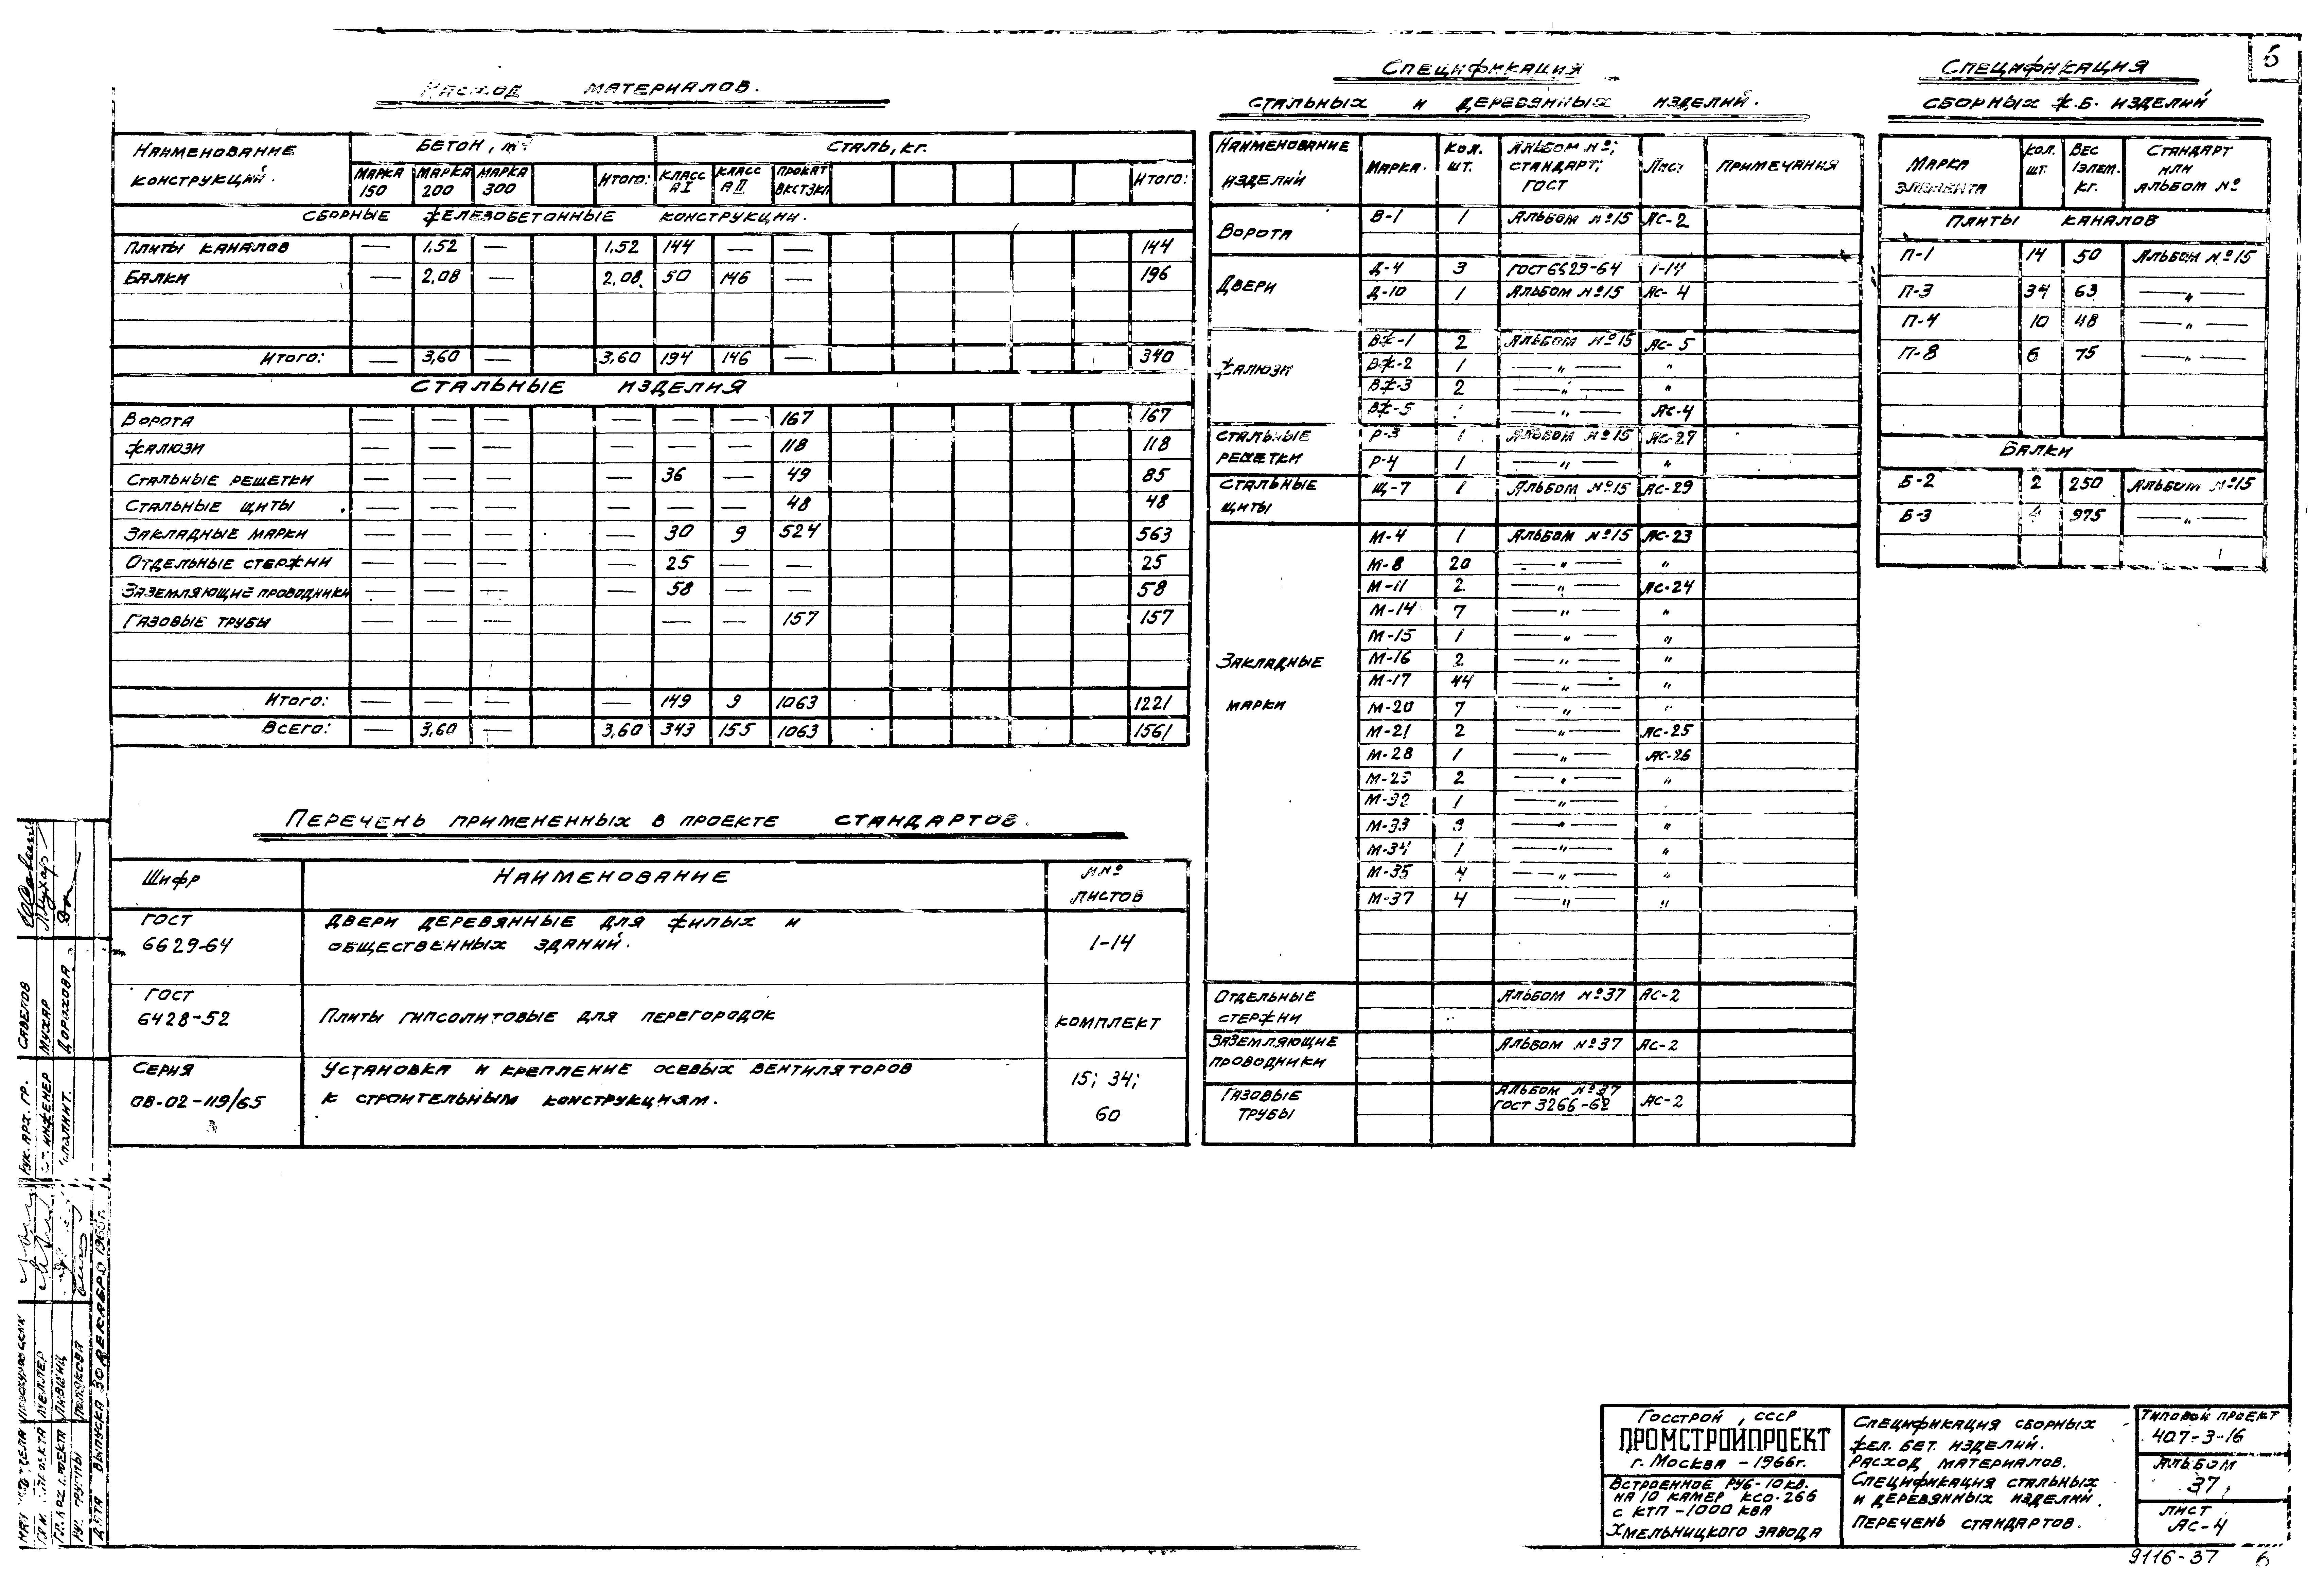 6
РАСХОД МАТЕРИАЛОВ.
НАИМЕНОВАНИЕ КОНСТРУКЦИЙ. БЕТОН, м³ СТАЛЬ, кг.
МАРКА 150 МАРКА 200 МАРКА 300 ИТОГО: КЛАСС АI КЛАСС АII ПРОКАТ ВКСТ3КП ИТОГО:
СБОРНЫЕ ЖЕЛЕЗОБЕТОННЫЕ КОНСТРУКЦИИ.
ПЛИТЫ КАНАЛОВ — 1.52 — 1.52 144 — — 144
БАЛКИ — 2,08 — 2,08 50 146 — 196
ИТОГО: — 3,60 — 3,60 194 146 — 340
СТАЛЬНЫЕ ИЗДЕЛИЯ
ВОРОТА — — — — — — 167 167
ЖАЛЮЗИ — — — — — — 118 118
СТАЛЬНЫЕ РЕШЕТКИ — — — — 36 — 49 85
СТАЛЬНЫЕ ЩИТЫ — — — — — — 48 48
ЗАКЛАДНЫЕ МАРКИ — — — — 30 9 524 563
ОТДЕЛЬНЫЕ СТЕРЖНИ — — — — 25 — — 25
ЗАЗЕМЛЯЮЩИЕ ПРОВОДНИКИ — — — — 58 — — 58
ГАЗОВЫЕ ТРУБЫ — — — — — — 157 157
ИТОГО: — — — — 149 9 1063 1221
ВСЕГО: — 3,60 — 3,60 343 155 1063 1561
ПЕРЕЧЕНЬ ПРИМЕНЕННЫХ В ПРОЕКТЕ СТАНДАРТОВ.
ШИФР НАИМЕНОВАНИЕ №№ ЛИСТОВ
ГОСТ 6629-64 ДВЕРИ ДЕРЕВЯННЫЕ ДЛЯ ЖИЛЫХ И
ОБЩЕСТВЕННЫХ ЗДАНИЙ. 1-14
ГОСТ 6428-52 ПЛИТЫ ГИПСОЛИТОВЫЕ ДЛЯ ПЕРЕГОРОДОК КОМПЛЕКТ
СЕРИЯ ОВ-02-119/65 УСТАНОВКА И КРЕПЛЕНИЕ ОСЕВЫХ ВЕНТИЛЯТОРОВ
К СТРОИТЕЛЬНЫМ КОНСТРУКЦИЯМ. 15; 34; 60
СПЕЦИФИКАЦИЯ
СТАЛЬНЫХ И ДЕРЕВЯННЫХ ИЗДЕЛИЙ.
НАИМЕНОВАНИЕ ИЗДЕЛИЙ МАРКА. КОЛ. ШТ. АЛЬБОМ №; СТАНДАРТ; ГОСТ ЛИСТ ПРИМЕЧАНИЯ
ВОРОТА В-1 1 АЛЬБОМ №15 АС-2
ДВЕРИ Д-4 3 ГОСТ 6629-64 1-14
Д-10 1 АЛЬБОМ №15 АС-4
ЖАЛЮЗИ ВЖ-1 2 АЛЬБОМ №15 АС-5
ВЖ-2 1 — „ — „
ВЖ-3 2 — „ — „
ВЖ-5 — „ — АС-4
СТАЛЬНЫЕ РЕШЕТКИ Р-3 1 АЛЬБОМ №15 АС-27
Р-4 1 — „ — „
СТАЛЬНЫЕ ЩИТЫ Щ-7 1 АЛЬБОМ №15 АС-29
ЗАКЛАДНЫЕ МАРКИ М-4 1 АЛЬБОМ №15 АС-23
М-8 20 — „ — „
М-11 2 — „ — АС-24
М-14 7 — „ — „
М-15 1 — „ — „
М-16 2 — „ — „
М-17 44 — „ — „
М-20 7 — „ — „
М-21 2 — „ — АС-25
М-28 1 — „ — АС-26
М-25 2 — „ — „
М-32 1 — „ —
М-33 — „ — „
М-34 1 — „ — „
М-35 4 — „ — „
М-37 4 — „ — „
ОТДЕЛЬНЫЕ СТЕРЖНИ АЛЬБОМ №37 АС-2
ЗАЗЕМЛЯЮЩИЕ ПРОВОДНИКИ АЛЬБОМ №37 АС-2
ГАЗОВЫЕ ТРУБЫ АЛЬБОМ №37 ГОСТ 3266-62 АС-2
СПЕЦИФИКАЦИЯ
СБОРНЫХ Ж.Б. ИЗДЕЛИЙ
МАРКА ЭЛЕМЕНТА КОЛ. ШТ. ВЕС 1ЭЛЕМ. КГ. СТАНДАРТ ИЛИ АЛЬБОМ №
ПЛИТЫ КАНАЛОВ
П-1 14 50 АЛЬБОМ №15
П-3 34 63 — „ —
П-4 10 48 — „ —
П-8 6 75 — „ —
БАЛКИ
Б-2 2 250 АЛЬБОМ №15
Б-3 975 — „ —
САВЕЛОВ
МУХАР
ДОРОХОВА
РУК. АРХ. ГР.
ИНЖЕНЕР
МЕЛЛЕР
ЛИВШИЦ
ПОЛЯКОВА
ДАТА ВЫПУСКА 30 ДЕКАБРЯ
ГОССТРОЙ, СССР
ПРОМСТРОЙПРОЕКТ
г. МОСКВА – 1966г.
ВСТРОЕННОЕ РУ6-10КВ.
НА 10 КАМЕР КСО-266
С КТП-1000 КВА
ХМЕЛЬНИЦКОГО ЗАВОДА
СПЕЦИФИКАЦИЯ СБОРНЫХ
ЖЕЛ. БЕТ. ИЗДЕЛИЙ.
РАСХОД МАТЕРИАЛОВ.
СПЕЦИФИКАЦИЯ СТАЛЬНЫХ
И ДЕРЕВЯННЫХ ИЗДЕЛИЙ.
ПЕРЕЧЕНЬ СТАНДАРТОВ.
ТИПОВОЙ ПРОЕКТ
407-3-16
АЛЬБОМ
37
ЛИСТ
АС-4
9116-37 6